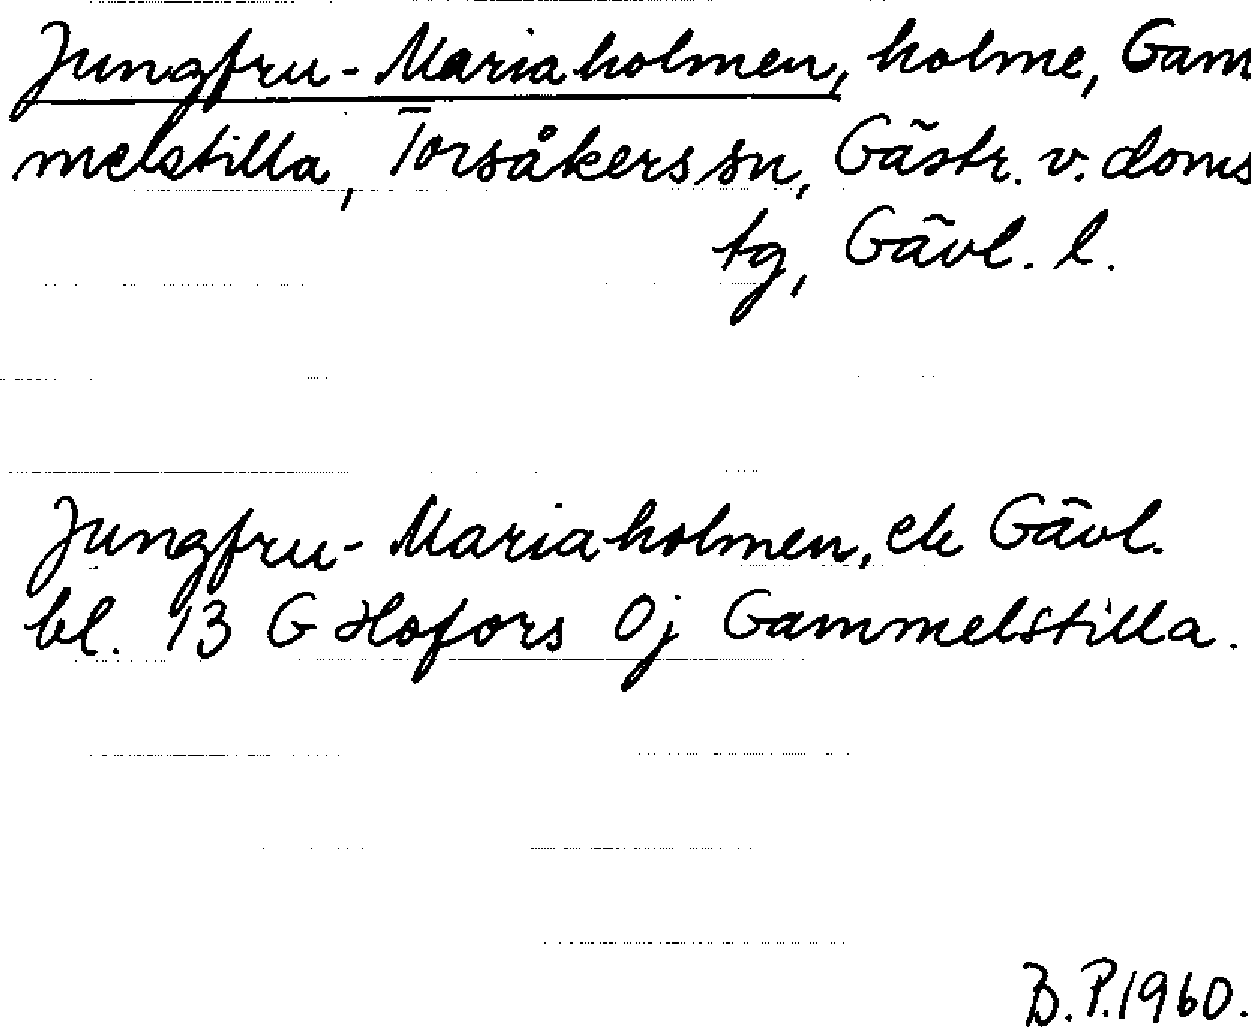 Jungfru-Mariaholmen, holme, Gam
melstilla, Torsåkers sn, Gästr. v. doms
tg, Gävl. l.
Jungfru-Mariaholmen, ek Gävl.
bl. 13 G Hofors 0j Gammelstilla.
B.P.1960.